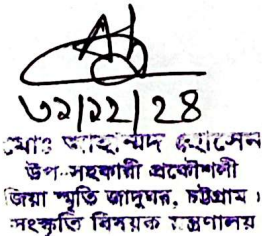 ৩১/১২/২৪
মোঃ আহম্মদ হোসেন
উপ-সহকারী প্রকৌশলী
জিয়া স্মৃতি জাদুঘর, চট্টগ্রাম।
সংস্কৃতি বিষয়ক মন্ত্রণালয়